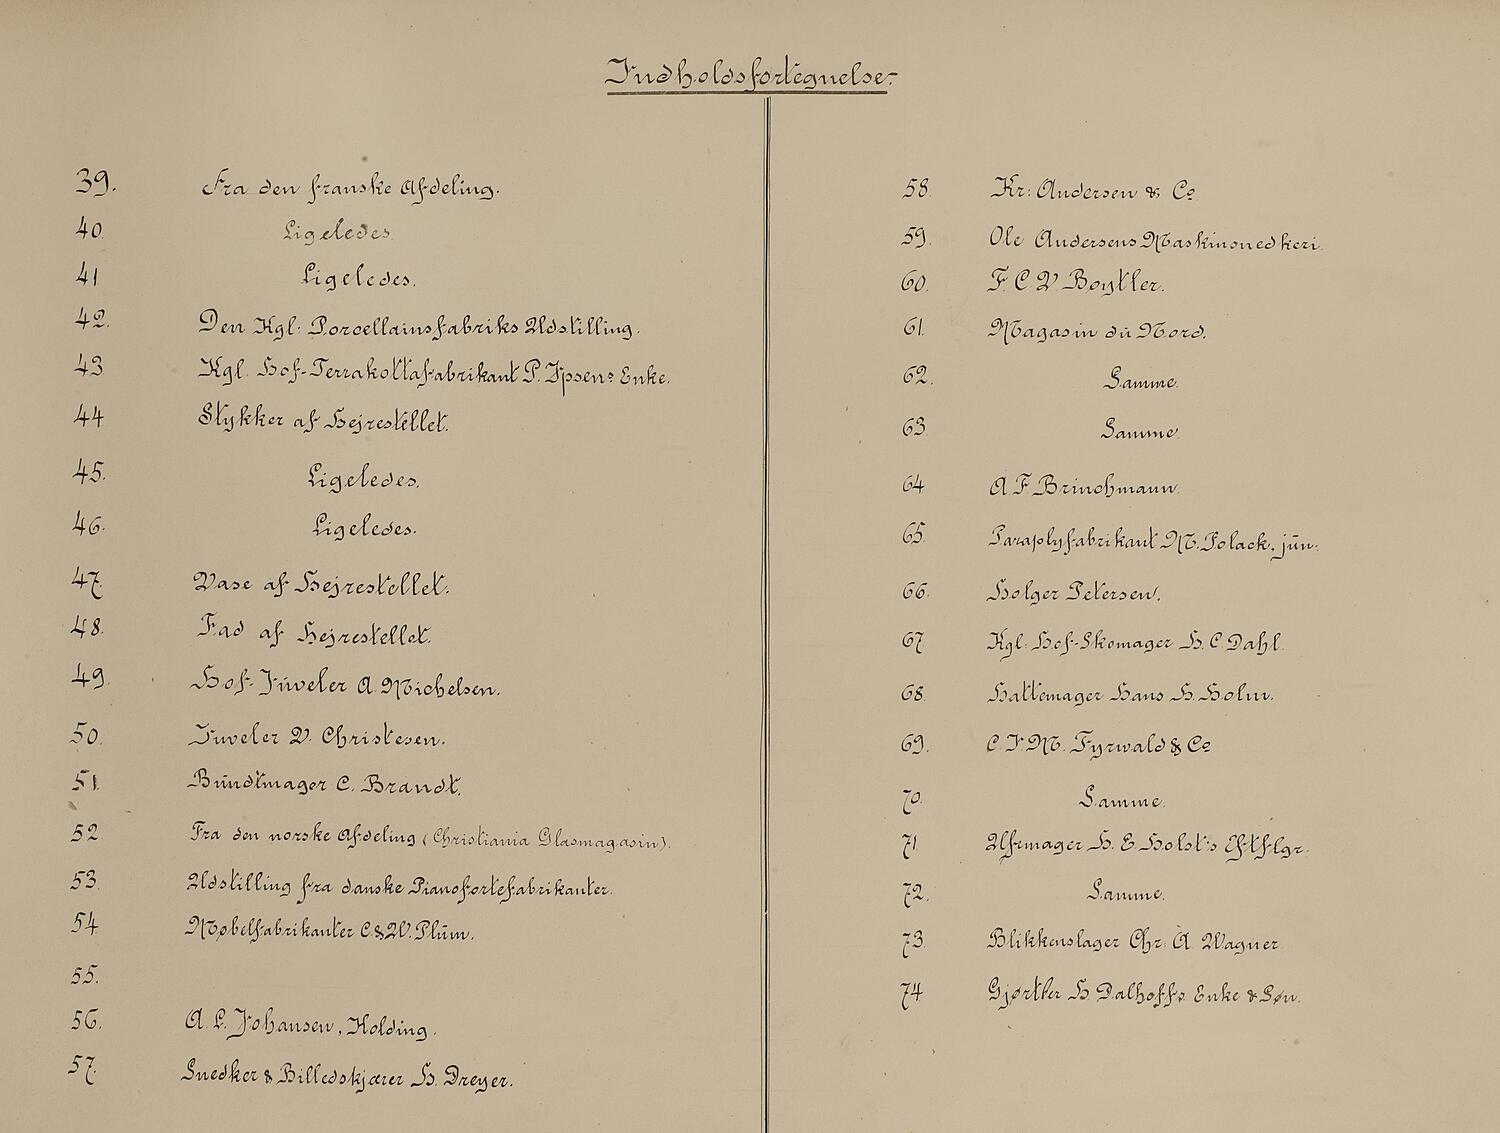 Indholdsfortegnelse.
39. Fra den franske Afdeling.
40. Ligeledes.
41 Ligeledes.
42. Den Kgl: Porcellainsfabriks Udstilling.
43. Kgl. Hof-Terrakottafabrikant P. Ipsens Enke.
44 Stykker af Hejrestellet.
45. Ligeledes.
46. Ligeledes.
47. Vase af Hejrestellet.
48. Fad af Hejrestellet.
49. Hof-Juveler A. Michelsen.
50. Juveler V. Christesen.
51. Bundtmager C. Brandt.
52 Fra den norske Afdeling (Christiania Glasmagasin).
53. Udstilling fra danske Pianofortefabrikanter.
54 Møbelfabrikanter C. & W. Plum.
55.
56. A. L. Johansen, Kolding.
57. Snedker & Billedskjærer H. Dreyer.
58. Kr: Andersen & Co
59. Ole Andersens Maskinsnedkeri.
60. F C V Boytler.
61. Magasin du Nord.
62. Samme.
63 Samme.
64 A. F. Brinchmann.
65. Paraplyfabrikant M. Polack, jun.
66. Holger Petersen.
67 Kgl: Hof-Skomager H. C. Dahl.
68. Hattemager Hans H. Holm.
69. C. I M. Fyrwald & Co
70. Samme.
71 Uhrmager H. E. Holst's Eftflgr.
72. Samme.
73. Blikkenslager Chr: A. Wagner.
74 Gjørtler H. Dalhoffs Enke & Søn.